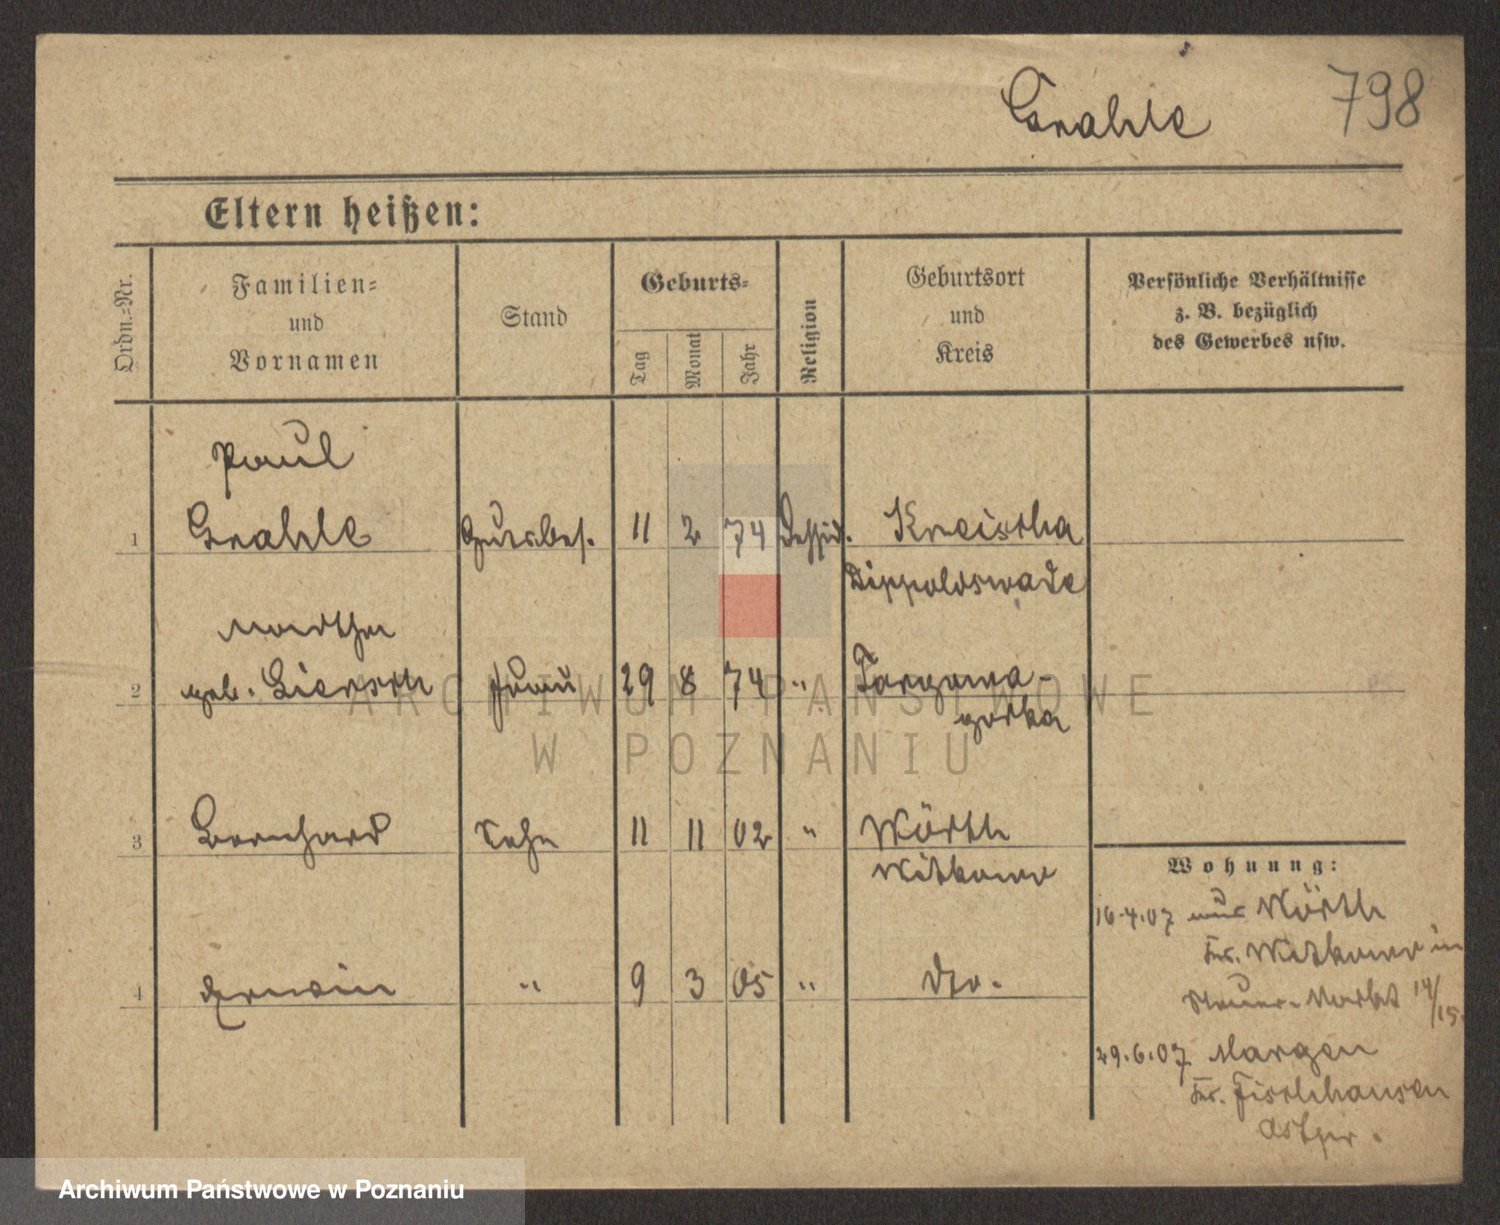 Grahle 798
Eltern heißen:
Ordn.-Nr.
Familien-
und
Vornamen
Stand
Geburts-
Tag
Monat
Jahr
Religion
Geburtsort
und
Kreis
Persönliche Verhältnisse
z. B. bezüglich
des Gewerbes usw.
Paul
1 Grahle Gutsbes. 11 2 74 Kreischa
Dippoldswade
Martha
2 geb. Frau 29 8 74 " Targowa-
gorka
3 Bernhard Sohn 11 11 02 " Wörth
Witkowo
4 Erwin " 9 3 05 " Dto.
Wohnung:
16.4.07 aus Wörth
Krs. Witkowo in
Neuer-Markt 14/15.
29.6.07 Margen
Krs. Fischhausen
Ostpr.
ARCHIWUM PAŃSTWOWE
W POZNANIU
Archiwum Państwowe w Poznaniu